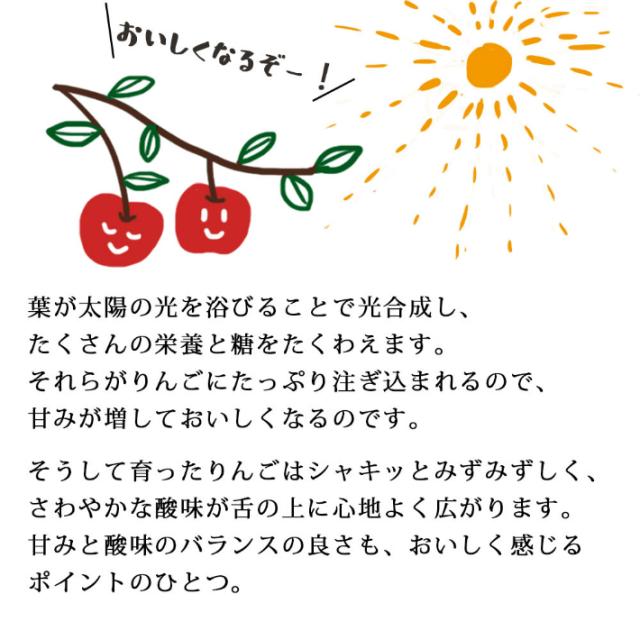 おいしくなるぞー！
葉が太陽の光を浴びることで光合成し、
たくさんの栄養と糖をたくわえます。
それらがりんごにたっぷり注ぎ込まれるので、
甘みが増しておいしくなるのです。
そうして育ったりんごはシャキッとみずみずしく、
さわやかな酸味が舌の上に心地よく広がります。
甘みと酸味のバランスの良さも、おいしく感じる
ポイントのひとつ。